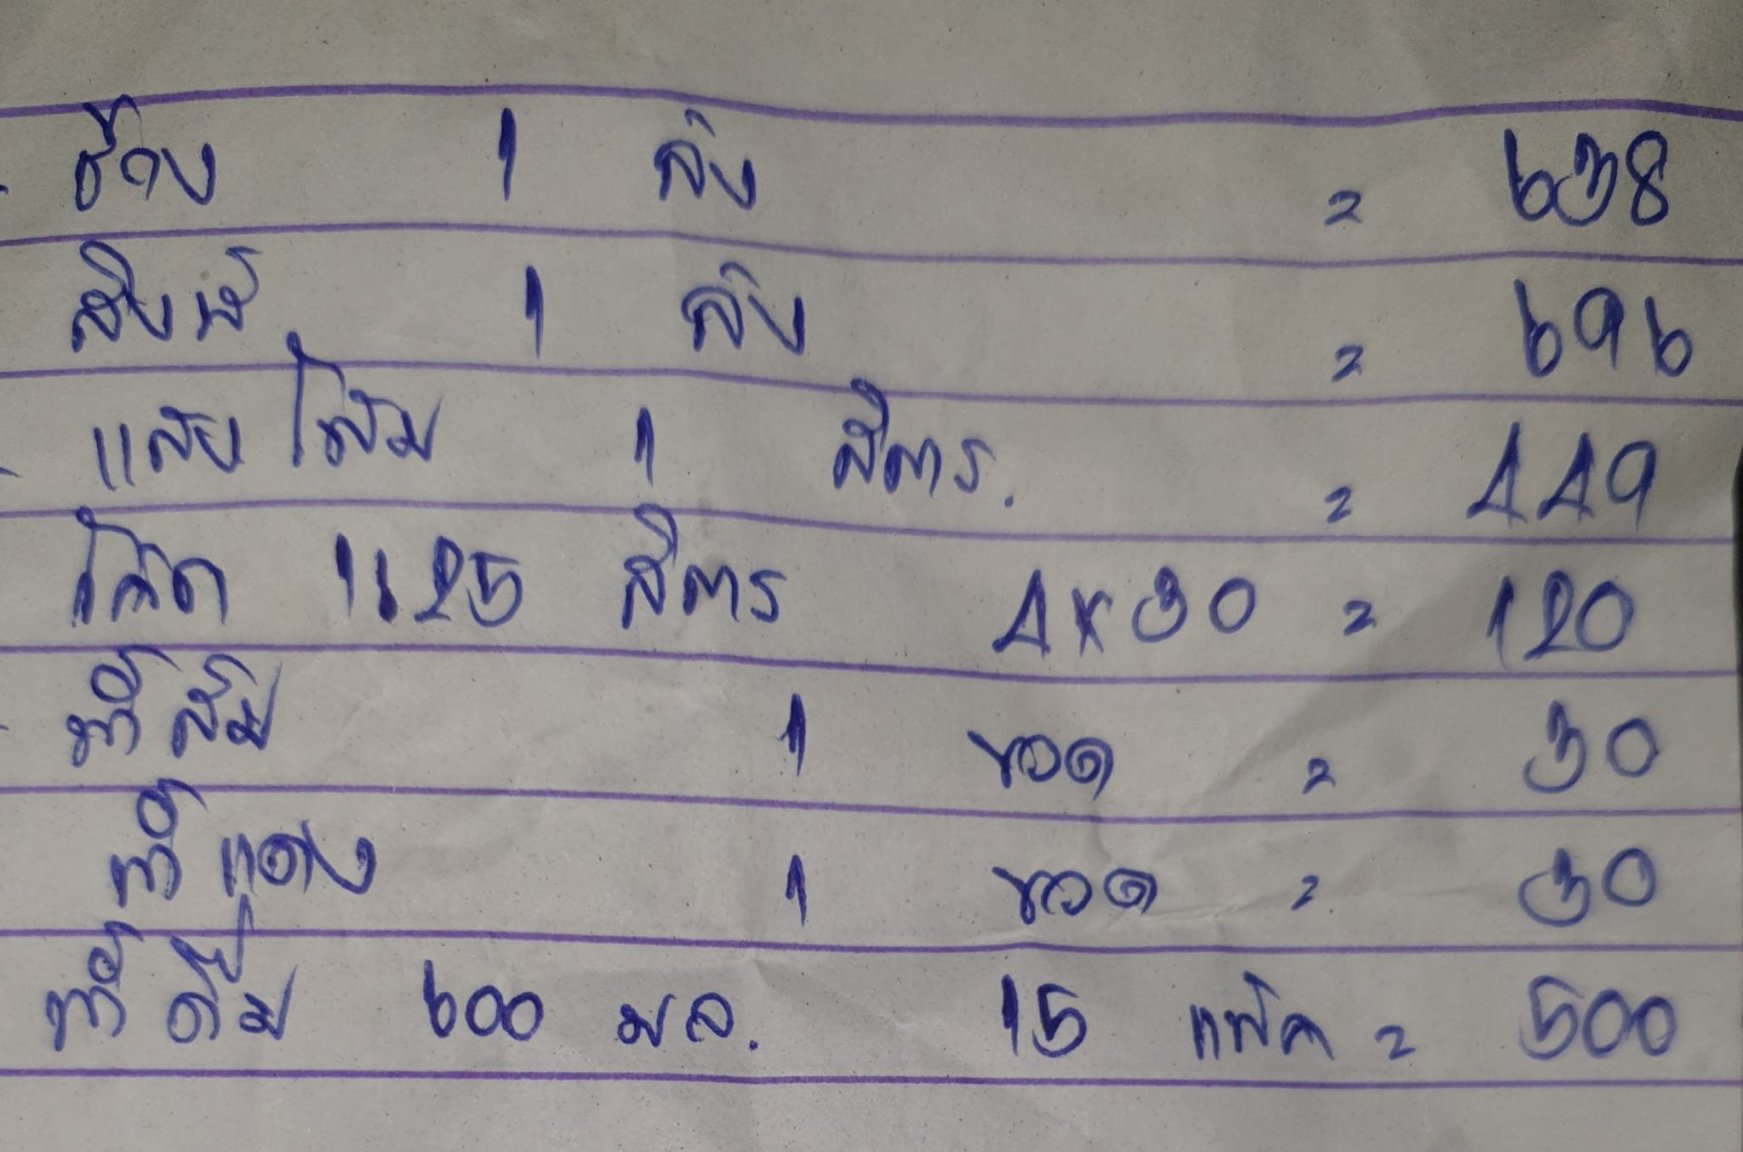 - ช้าง 1 ลัง = 638
สิงห์ 1 ลัง = 696
- แสงโสม 1 ลิตร. = 449
โค้ด 1.25 ลิตร 4x30 = 120
- น้ำส้ม 1 ขวด = 30
น้ำแดง 1 ขวด = 30
น้ำดื่ม 600 มล. 15 แพ็ค = 500